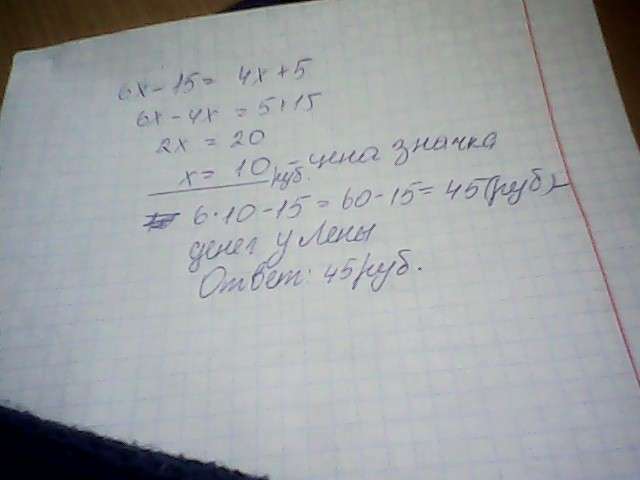 6x - 15 = 4x + 5
6x - 4x = 5 + 15
2x = 20
x = 10 руб. - цена значка
6·10 - 15 = 60 - 15 = 45 (руб) -
денег у Лены
Ответ: 45 руб.